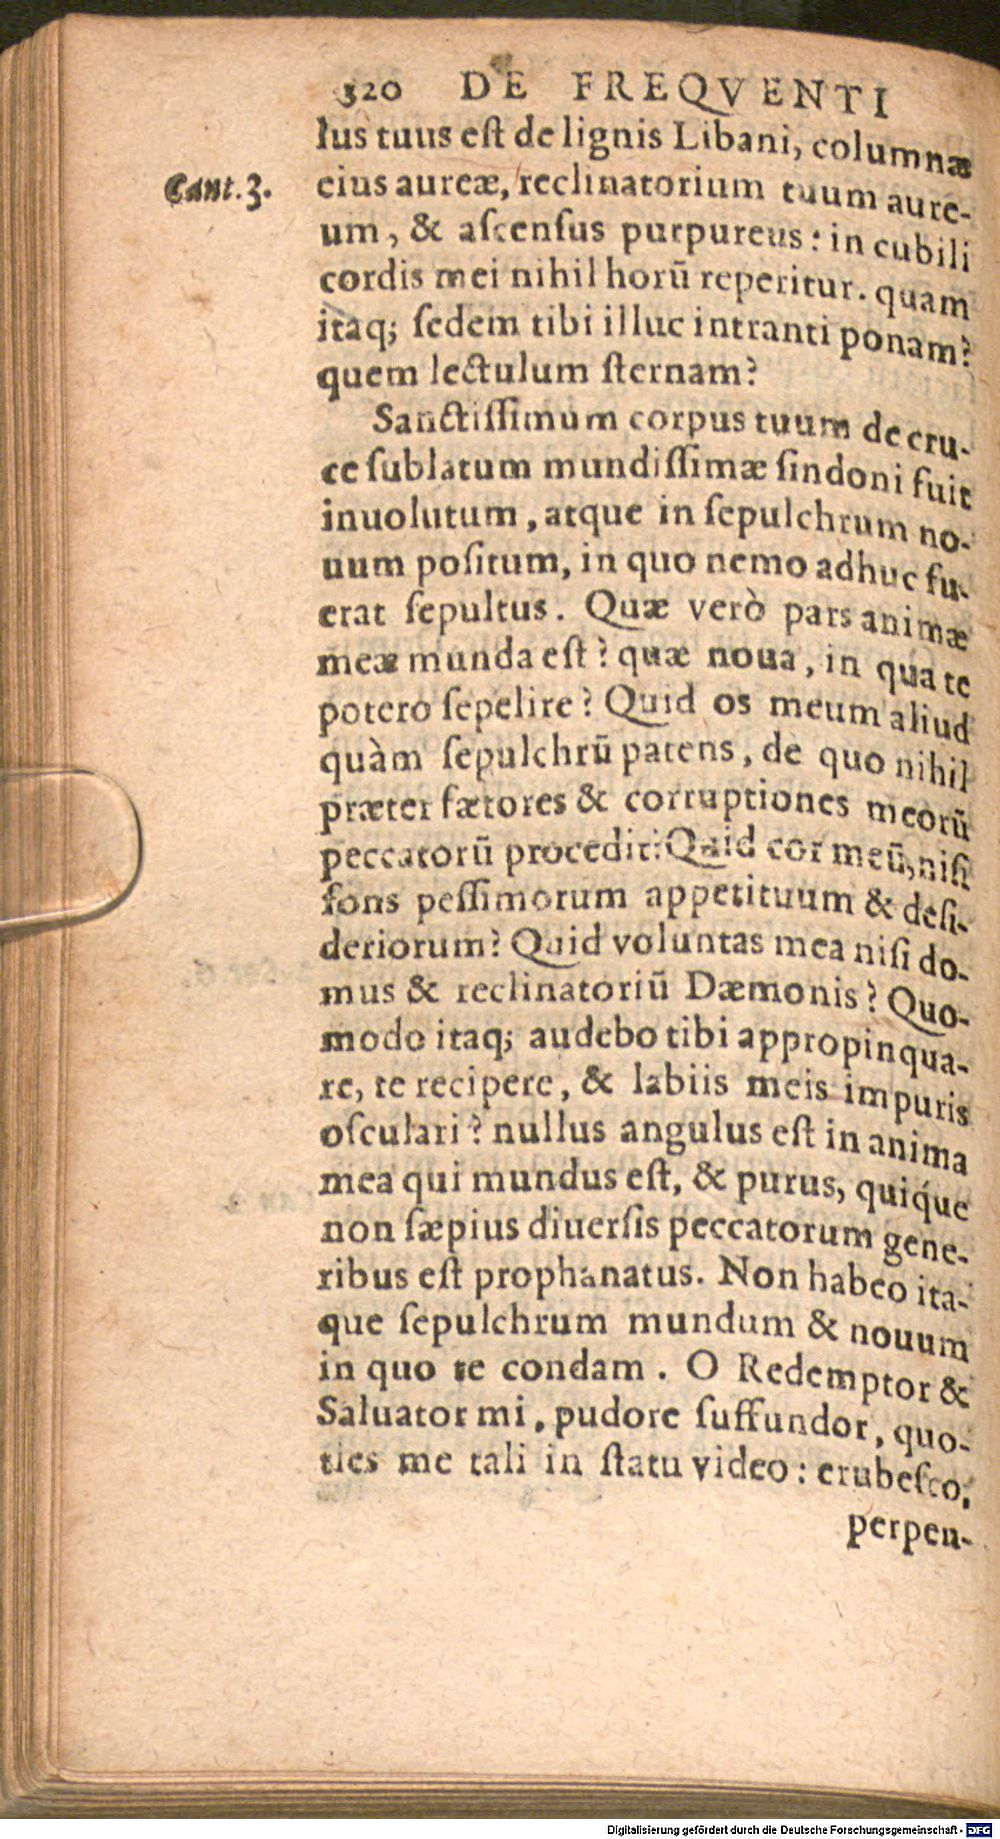 320 DE FREQVENTI
lus tuus eſt de lignis Libani, columnæ
Cant. 3.
eius aureæ, reclinatorium tuum aure-
um, & aſcenſus purpureus: in cubili
cordis mei nihil horũ reperitur. quam
itaq; ſedem tibi illuc intranti ponam?
quem lectulum ſternam?
Sanctiſſimum corpus tuum de cru-
ce ſublatum mundiſſimæ ſindoni fuit
inuolutum, atque in ſepulchrum no-
uum poſitum, in quo nemo adhuc fu-
erat ſepultus. Quæ verò pars animæ
meæ munda eſt? quæ noua, in qua te
potero ſepelire? Quid os meum aliud
quàm ſepulchrũ patens, de quo nihil
præter fætores & corruptiones meorũ
peccatorũ procedit: Quid cor meũ, niſi
fons peſſimorum appetituum & deſi-
deriorum? Quid voluntas mea niſi do-
mus & reclinatoriũ Dæmonis? Quo-
modo itaq; audebo tibi appropinqua-
re, te recipere, & labiis meis impuris
oſculari? nullus angulus eſt in anima
mea qui mundus eſt, & purus, quíque
non ſæpius diuerſis peccatorum gene-
ribus eſt prophanatus. Non habeo ita-
que ſepulchrum mundum & nouum
in quo te condam. O Redemptor &
Saluator mi, pudore ſuffundor, quo-
ties me tali in ſtatu video: erubeſco,
perpen-
Digitalisierung gefördert durch die Deutsche Forschungsgemeinschaft - DFG